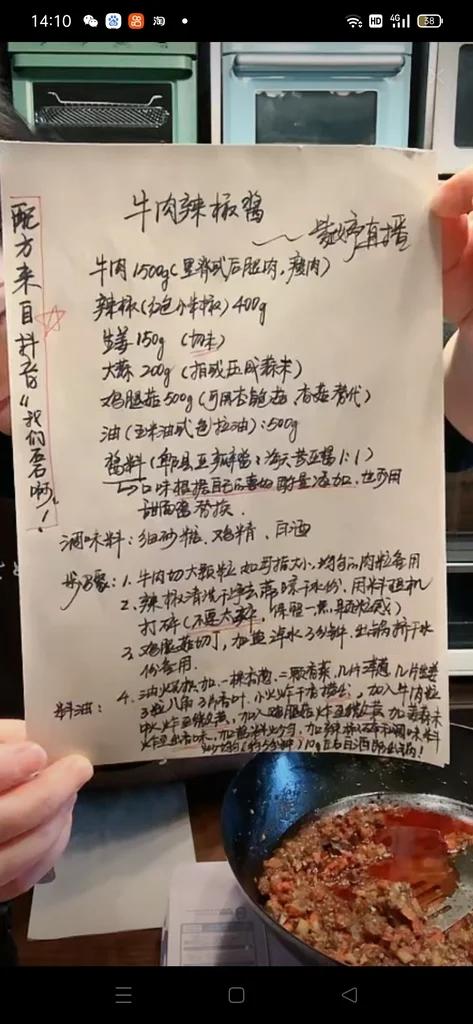 14:10
HD 4G 38
牛肉辣椒酱
直播
配方来自抖音《我们在石啊》!
牛肉1500g(里脊或后腿肉,瘦肉)
辣椒(红色小米椒)400g
生姜150g (切末)
大蒜200g (拍或压成蒜末)
鸡腿菇500g(可用杏鲍菇、香菇替代)
油(玉米油或色拉油):500g
酱料(郫县豆瓣酱:海天黄豆酱1:1)
口味根据自己喜好酌量添加,也可用
甜面酱替换.
调味料:细砂糖、鸡精、白酒
步骤:1.牛肉切大颗粒如耳指大小,均匀的肉粒备用
2.辣椒清洗干净去蒂晾干水份,用料理机
打碎(不要太碎,保留一点颗粒感)
3.鸡腿菇切丁,加盐焯水3分钟,出锅挤干水
份备用.
料油:4.油烧热加一根大葱、二颗香菜、几片洋葱、几片生姜
3粒八角、3片香叶,小火炸干香捞出,加入牛肉粒
中火炸至微黄,加入鸡腿菇炸至微黄,加姜蒜末
炸至出香味,加酱料炒匀,加辣椒碎和调味料
(约5分钟)10g左右白酒即出锅!